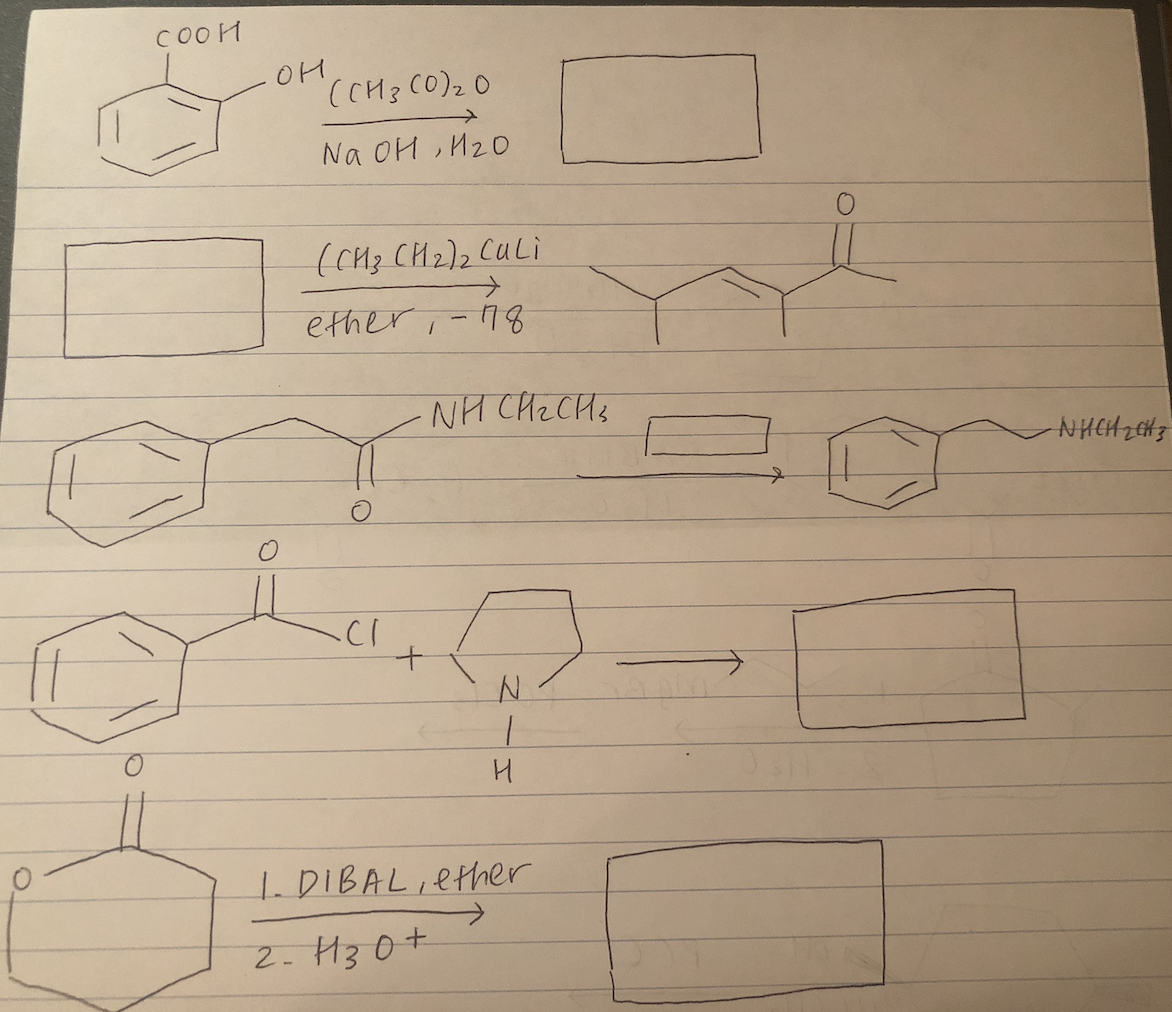 COOH
OH
(CH3CO)2O
NaOH, H2O
O
(CH3CH2)2CuLi
ether, -78
NHCH2CH3
O
NHCH2CH3
O
Cl
+
N
H
O
O
1. DIBAL, ether
2. H3O+